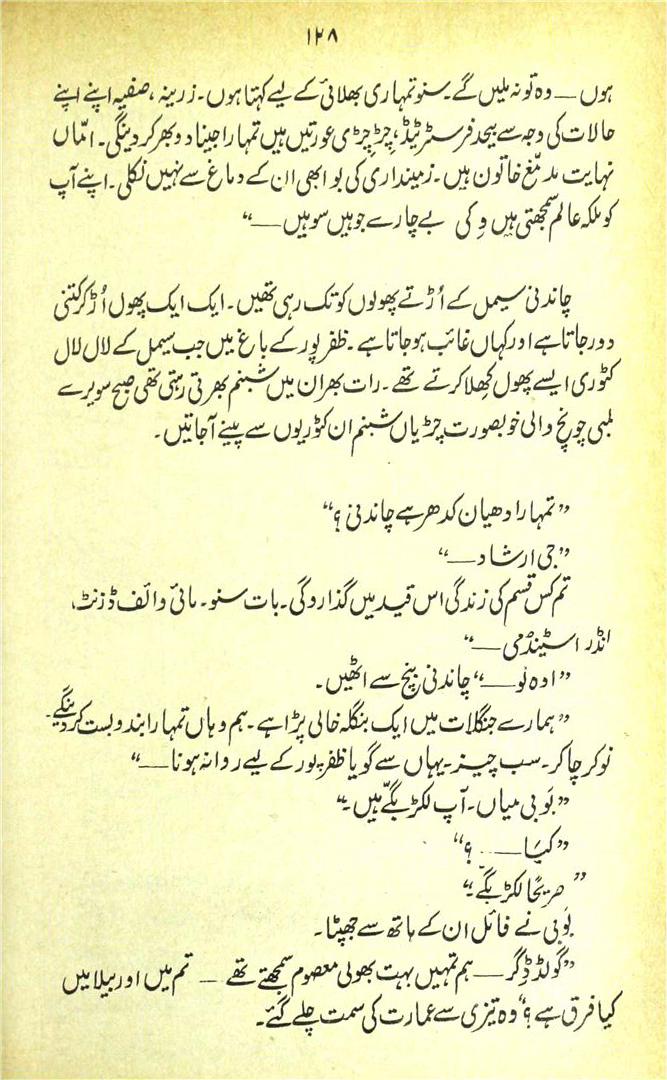 ۱۲۸
ہوں — وہ تو نہ ملیں گے۔ سنو تمہاری بھلائی کے لیے کہتا ہوں۔ زرینہ، صفیہ اپنے اپنے
حالات کی وجہ سے بیحد فرسٹریٹیڈ، چڑچڑی عورتیں ہیں تمہارا جینا دوبھر کر دینگی۔ امّاں
نہایت مدمّغ خاتون ہیں۔ زمینداری کی بو ابھی ان کے دماغ سے نہیں نکلی۔ اپنے آپ
کو ملکہ عالم سمجھتی ہیں وِکی بے چارے جو ہیں سو ہیں —“
چاندنی سیمل کے اُڑتے پھولوں کو تک رہی تھیں۔ ایک ایک پھول اُڑ کر کتنی
دور جاتا ہے اور کہاں غائب ہو جاتا ہے۔ ظفرپور کے باغ میں جب سیمل کے لال لال
کٹوری ایسے پھول کھِلا کرتے تھے۔ رات بھر ان میں شبنم بھرتی رہتی تھی صبح سویرے
لمبی چونچ والی خوبصورت چڑیاں شبنم ان کٹوریوں سے پینے آجاتیں۔
”تمہارا دھیان کدھر ہے چاندنی ؟“
”جی ارشاد —“
تم کس قسم کی زندگی اس قید میں گذاروگی۔ بات سنو۔ مائی وائف ڈزنٹ،
انڈر اسٹینڈمی —“
”اوہ نو —“ چاندنی بنچ سے اٹھیں۔
”ہمارے جنگلات میں ایک بنگلہ خالی پڑا ہے۔ ہم وہاں تمہارا بندوبست کر دینگے۔
نوکر چاکر۔ سب چیز۔ یہاں سے گویا ظفرپور کے لیے روانہ ہونا —“
”بَوبی میاں۔ آپ لکڑبگّے ہیں۔“
”کیَا — ؟“
”صریحًا لکڑبگّے۔“
بَوبی نے فائل ان کے ہاتھ سے جھپٹا۔
”گولڈ ڈِگر — ہم تمہیں بہت بھولی معصوم سمجھتے تھے — تم میں اور بیلا میں
کیا فرق ہے ؟“ وہ تیزی سے عمارت کی سمت چلے گئے۔